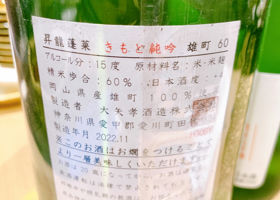 昇龍蓬莱 きもと純吟 雄町 60
アルコール分:15度 原材料名:米・米麹
精米歩合:60% 日本酒度:
岡山県産雄町100%使用
製造者 大矢孝酒造株式
神奈川県愛甲郡愛川町田
製造年月 2022.11
※このお酒はお燗をつけること
より一層美味しくいただけます
お酒は20歳になってから。お酒は